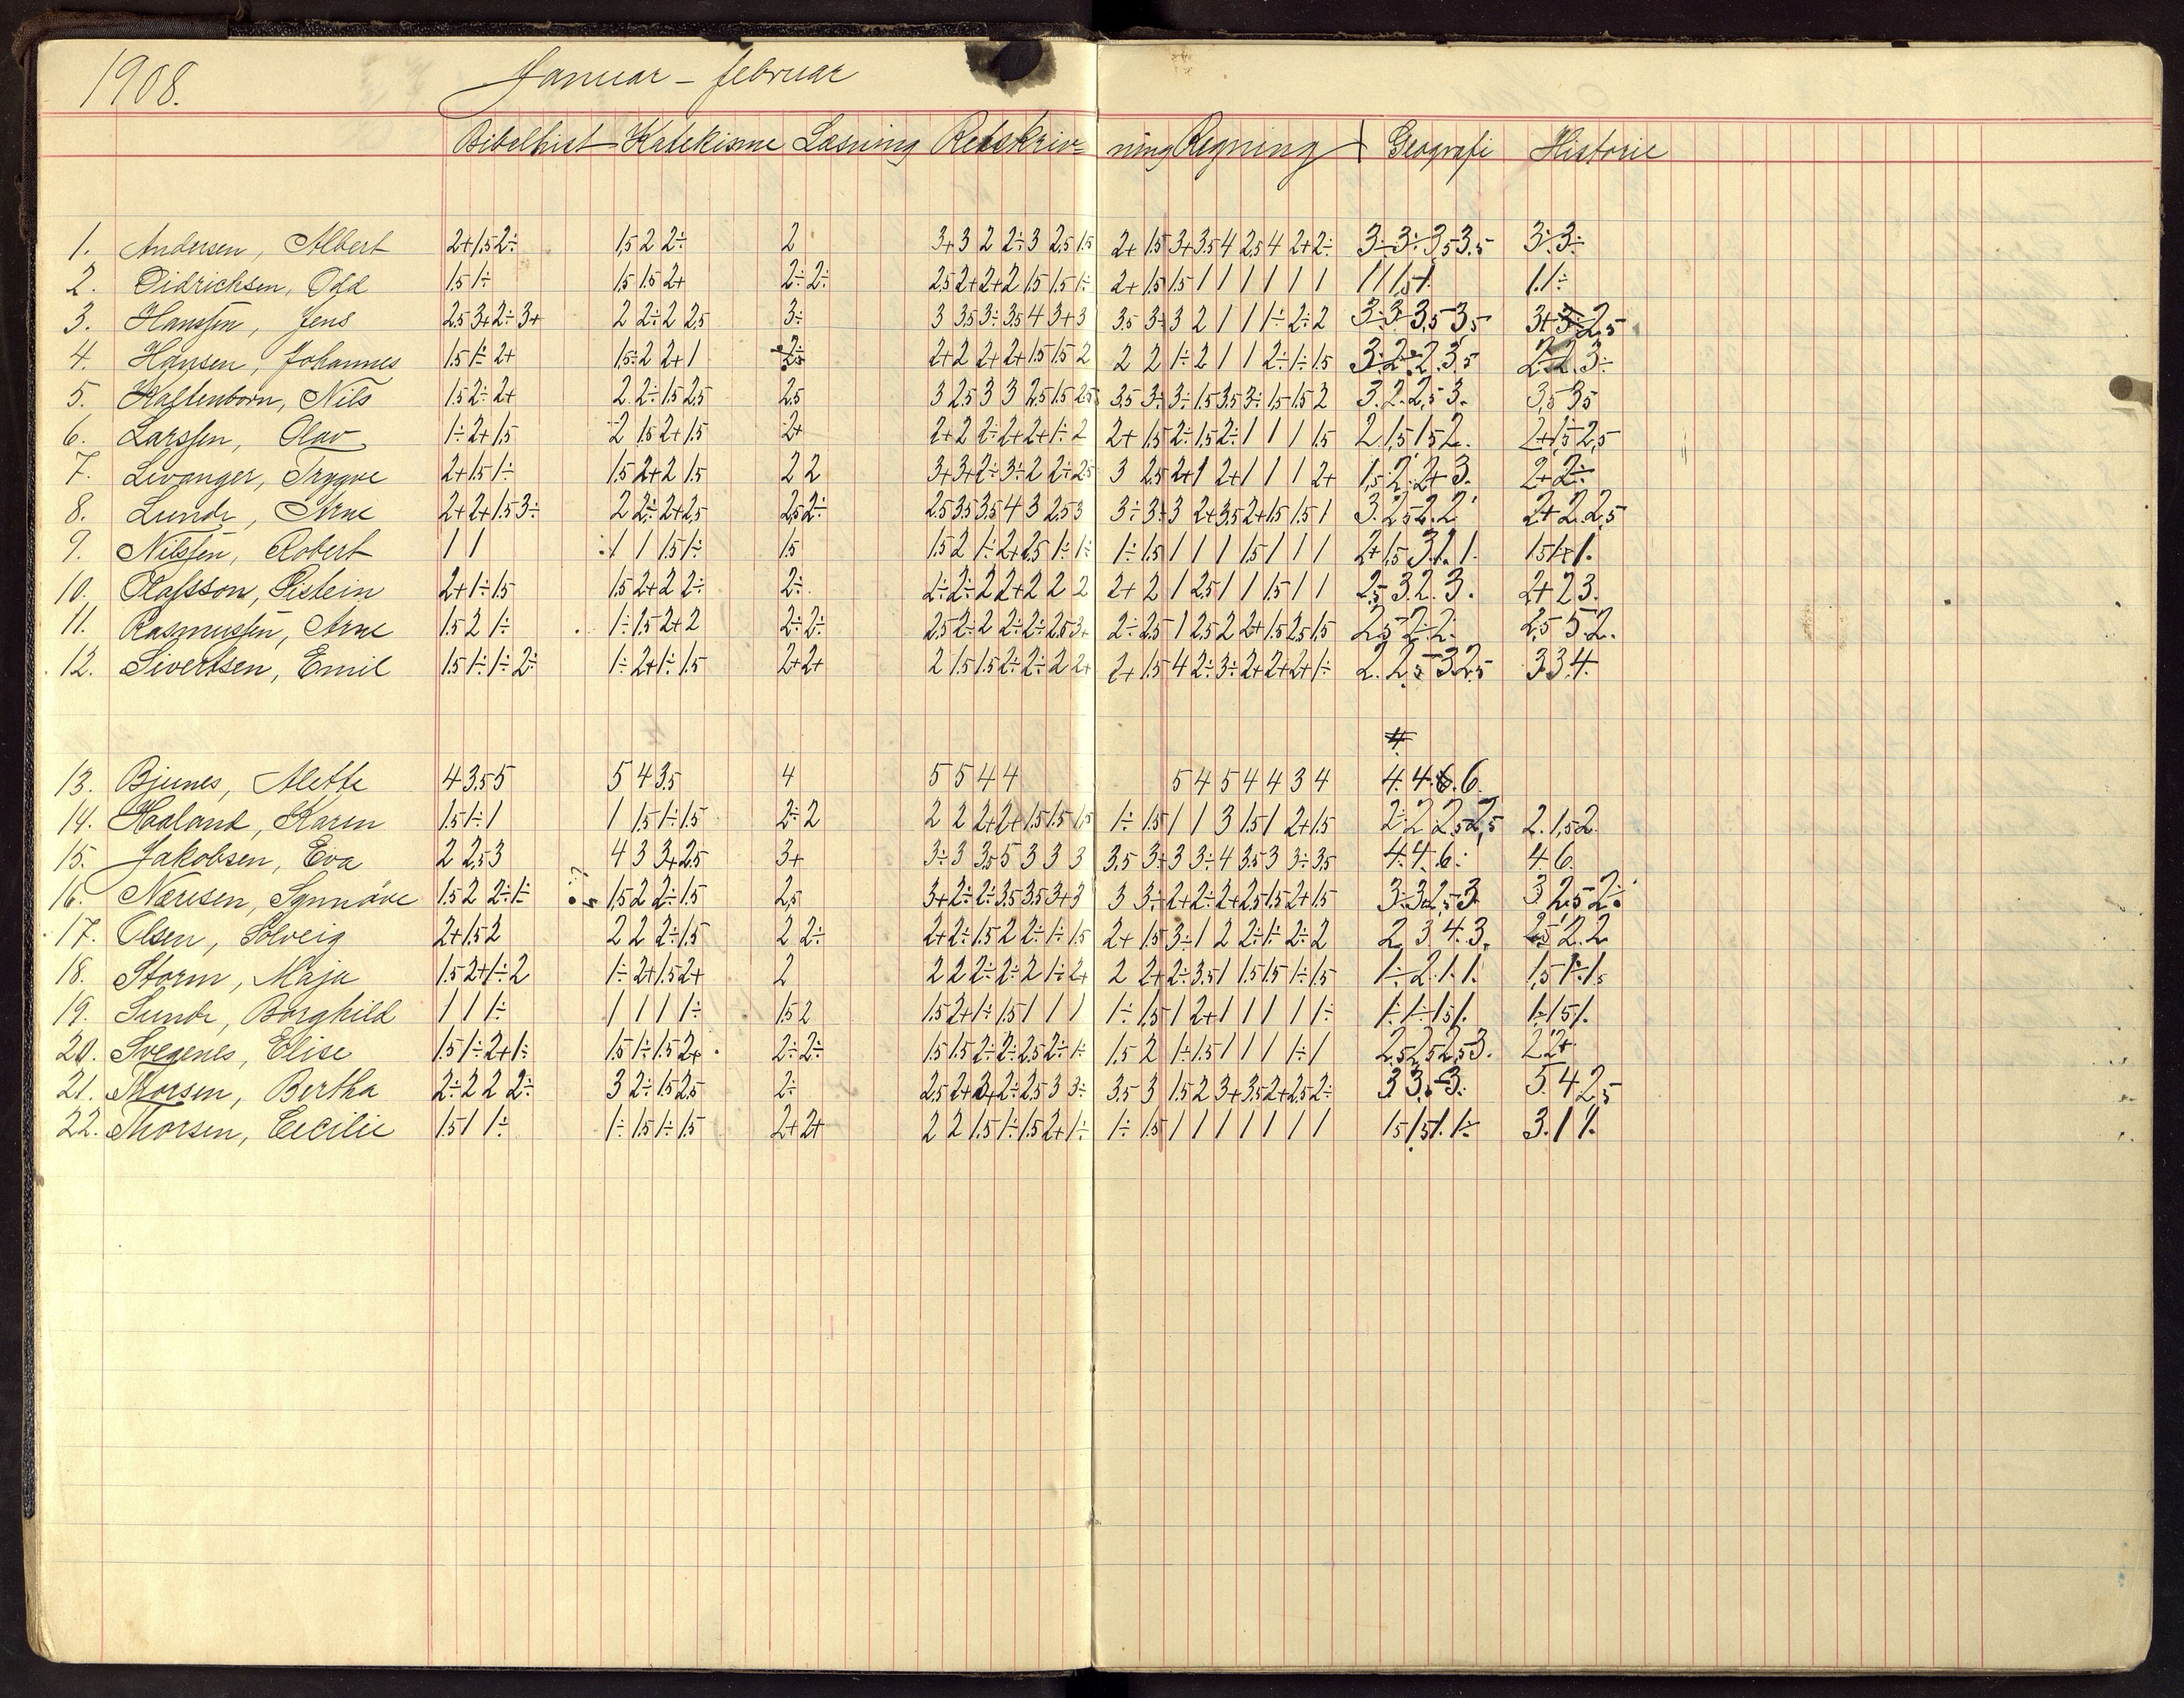 1908. Januar - februar
Bibelhist Katekisme Læsning Retskriv- ning Regning Geografi Historie
1. Andersen, Albert 2+ 1.5 2÷ 1,5 2 2÷ 2 3+ 3 2 2÷ 3 2,5 1.5 2+ 1.5 3+ 3.5 4 2.5 4 2+ 2÷ 3÷ 3÷ 3,5 3.5 3÷ 3÷
2. Didrichsen, Odd 1.5 1÷ 1.5 1.5 2+ 2÷ 2÷ 2.5 2+ 2+ 2 1.5 1.5 1÷ 2+ 1.5 1.5 1 1 1 1 1 1 1 1 1,5 1. 1. 1÷
3. Hanssen, Jens 2.5 3+ 2÷ 3+ 2 2÷ 2 2,5 3÷ 3 3.5 3÷ 3.5 4 3+ 3 3.5 3÷ 3 2 1 1 1÷ 2÷ 2 3÷ 3÷ 3,5 3,5 3+ 3÷ 2,5
4. Hansen, Johannes 1.5 1÷ 2+ 1,5÷ 2 2+ 1 2+ 2 2+ 2+ 1.5 1.5 2 2 2 1÷ 2 1 1 2÷ 1÷ 1.5 3÷ 2÷ 2. 3,5 2÷ 2. 3÷
5. Kaltenborn, Nils 1.5 2÷ 2+ 2 2÷ 1.5 2.5 2.5 3 2.5 3 3 2.5 1.5 2.5 3.5 3÷ 3÷ 1.5 3.5 3÷ 1.5 1.5 2 3. 2. 2,5 3. 3,5 3,5
6. Larssen, Olav 1÷ 2+ 1.5 2 1.5 2+ 1.5 2+ 2+ 2 2÷ 2+ 2+ 1÷ 2 2+ 1.5 2÷ 1.5 2÷ 1 1 1 1.5 2. 1,5 1,5 2. 2+ 1,5 2,5
7. Levanger, Trygve 2+ 1.5 1÷ 1.5 2+ 2 1.5 2 2 3+ 3+ 2÷ 3÷ 2 2÷ 2.5 3 2.5 2+ 1 2+ 1 1 1 2+ 1,5 2. 2+ 3. 2+ 2÷
8. Lunde, Arne 2+ 2+ 1.5 3÷ 2 2÷ 2+ 2,5 2,5 2÷ 2.5 3.5 3.5 4 3 2.5 3 3÷ 3+ 3 2+ 3.5 2+ 1.5 1.5 1 3. 2,5 2. 2 2+ 2. 2,5
9. Nilssen, Robert 1 1 1 1 1.5 1÷ 1.5 1.5 2 1÷ 2+ 2.5 1÷ 1÷ 1÷ 1.5 1 1 1 1.5 1 1 1 2+ 1,5 3. 1. 1. 1.5 1+ 1.
10. Olafsson, Eistein 2+ 1÷ 1.5 1.5 2+ 2 2÷ 2÷ 2÷ 2÷ 2 2+ 2 2 2 2+ 2 1 2.5 1 1 1.5 1 1 2,5 3. 2. 3. 2+ 2 3.
11. Rasmussen, Arne 1.5 2 1÷ 1÷ 1.5 2+ 2 2÷ 2÷ 2.5 2÷ 2 2÷ 2÷ 2.5 3+ 2÷ 2.5 1 2.5 2 2+ 1.5 2.5 1.5 2,5 2÷ 2. 2,5 5. 2.
12. Sivertsen, Emil 1.5 1÷ 1÷ 2÷ 1÷ 2+ 1÷ 1.5 2+ 2+ 2 1.5 1.5 2÷ 2÷ 2 2+ 2+ 1.5 4 2÷ 3÷ 2+ 2+ 2+ 1÷ 2. 2,5 3. 2,5 3 3. 4.
13. Bjunes, Mette 4 3.5 5 5 4 3.5 4 5 5 4 4 5 4 5 4 4 3 4 4. 4. 6. 6.
14. Haaland, Karen 1.5 1÷ 1 1 1.5 1÷ 1.5 2÷ 2 2 2 2+ 2+ 1.5 1.5 1.5 1÷ 1.5 1 1 3 1.5 1 2+ 1.5 2÷ 2 2,5 2,5 2. 1,5 2.
15. Jakobsen, Eva 2 2,5 3 4 3 3+ 2,5 3+ 3÷ 3 3.5 5 3 3 3 3.5 3+ 3 3÷ 4 3.5 3 3÷ 3.5 4. 4. 6. 4 6.
16. Næresen, Synnöve 1.5 2 2÷ 1÷ 1,5 2 2÷ 1.5 2,5 3+ 2÷ 2÷ 3.5 3.5 3+ 3 3 3÷ 2+ 2÷ 2+ 2.5 1.5 2+ 1.5 3÷ 3. 2,5 3 3 2,5 2÷
17. Olsen, Solveig 2+ 1.5 2 2 2 2÷ 1.5 2 2÷ 2+ 2÷ 1.5 2 2÷ 1÷ 1.5 2+ 1.5 3÷ 1 2 2÷ 1÷ 2÷ 2 2. 3 4. 3. 2,5 2. 2
18. Storm, Maja 1.5 2+ 1÷ 2 1÷ 2+ 1.5 2+ 2 2 2 2÷ 2÷ 2 1÷ 2+ 2 2+ 2÷ 3.5 1 1.5 1.5 1÷ 1.5 1÷ 2. 1. 1. 1,5 1÷ 1,5
19. Sunde, Borghild 1 1 1÷ 1 1 1 1÷ 1.5 2 1.5 2+ 1÷ 1.5 1 1 1 1÷ 1.5 1 2+ 1 1 1 1 1÷ 1÷ 1÷ 1,5 1. 1÷ 1,5 1.
20. Svegenes, Elise 1.5 1÷ 2+ 1÷ 1.5 1÷ 1.5 2+ 2÷ 2÷ 1.5 1.5 2÷ 2÷ 2.5 2÷ 1÷ 1.5 2 1÷ 1.5 1 1 1 1÷ 1 2,5 2,5 2,5 3. 2 2+
21. Thorsen, Bertha 2÷ 2 2 2÷ 3 2÷ 1.5 2,5 2÷ 2.5 2+ 3+ 2÷ 2.5 3 3÷ 3.5 3 1.5 2 3+ 3.5 2+ 2.5 2÷ 3 3. 3. 5. 4 2,5
22. Thorsen, Cecilie 1.5 1 1÷ 1÷ 1.5 1÷ 1.5 2+ 2+ 2 2 1.5 1÷ 1.5 2+ 1÷ 1÷ 1.5 1 1 1 1 1 1 1 1,5 1,5 1. 1÷ 3. 1 1.